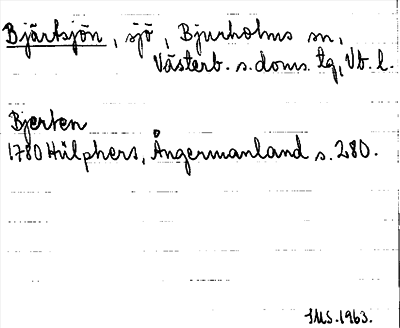 Bjärtsjön, sjö, Bjurholms sn,
Västerb. s. doms. tg, Vb. l.
Bjerten
1780 Hülphers, Ångermanland s. 280.
IMS. 1963.